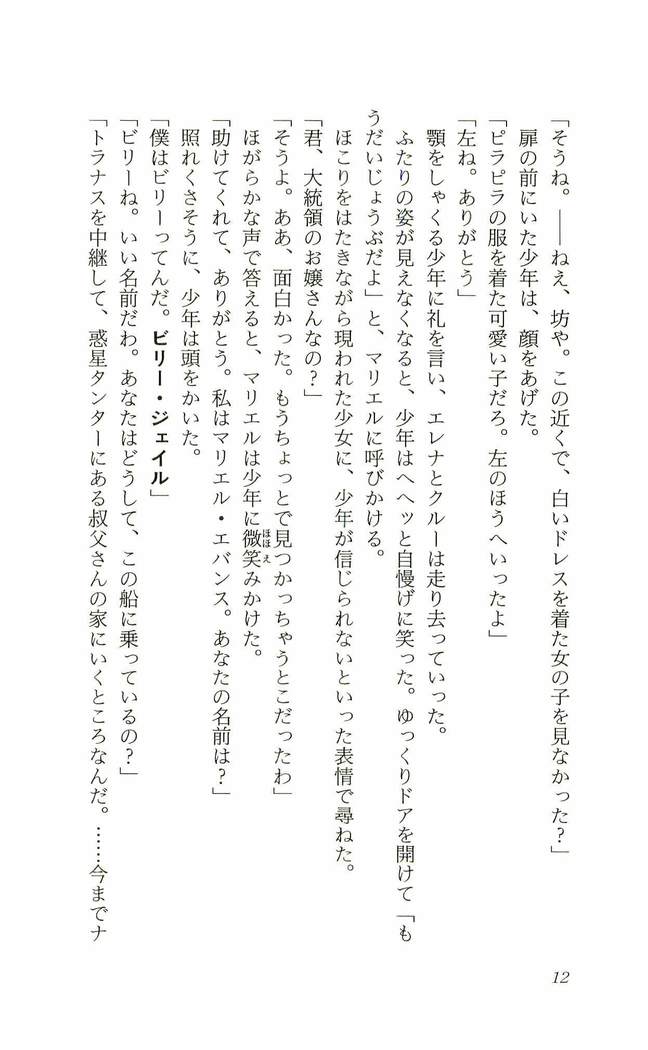 「そうね。――ねえ、坊や。この近くで、白いドレスを着た女の子を見なかった？」
扉の前にいた少年は、顔をあげた。
「ピラピラの服を着た可愛い子だろ。左のほうへいったよ」
「左ね。ありがとう」
顎をしゃくる少年に礼を言い、エレナとクルーは走り去っていった。
ふたりの姿が見えなくなると、少年はヘヘッと自慢げに笑った。ゆっくりドアを開けて「も
うだいじょうぶだよ」と、マリエルに呼びかける。
ほこりをはたきながら現われた少女に、少年が信じられないといった表情で尋ねた。
「君、大統領のお嬢さんなの？」
「そうよ。ああ、面白かった。もうちょっとで見つかっちゃうとこだったわ」
ほがらかな声で答えると、マリエルは少年に微笑ほほえみかけた。
「助けてくれて、ありがとう。私はマリエル・エバンス。あなたの名前は？」
照れくさそうに、少年は頭をかいた。
「僕はビリーってんだ。ビリー・ジェイル」
「ビリーね。いい名前だわ。あなたはどうして、この船に乗っているの？」
「トラナスを中継して、惑星タンターにある叔父さんの家にいくところなんだ。……今までナ
12